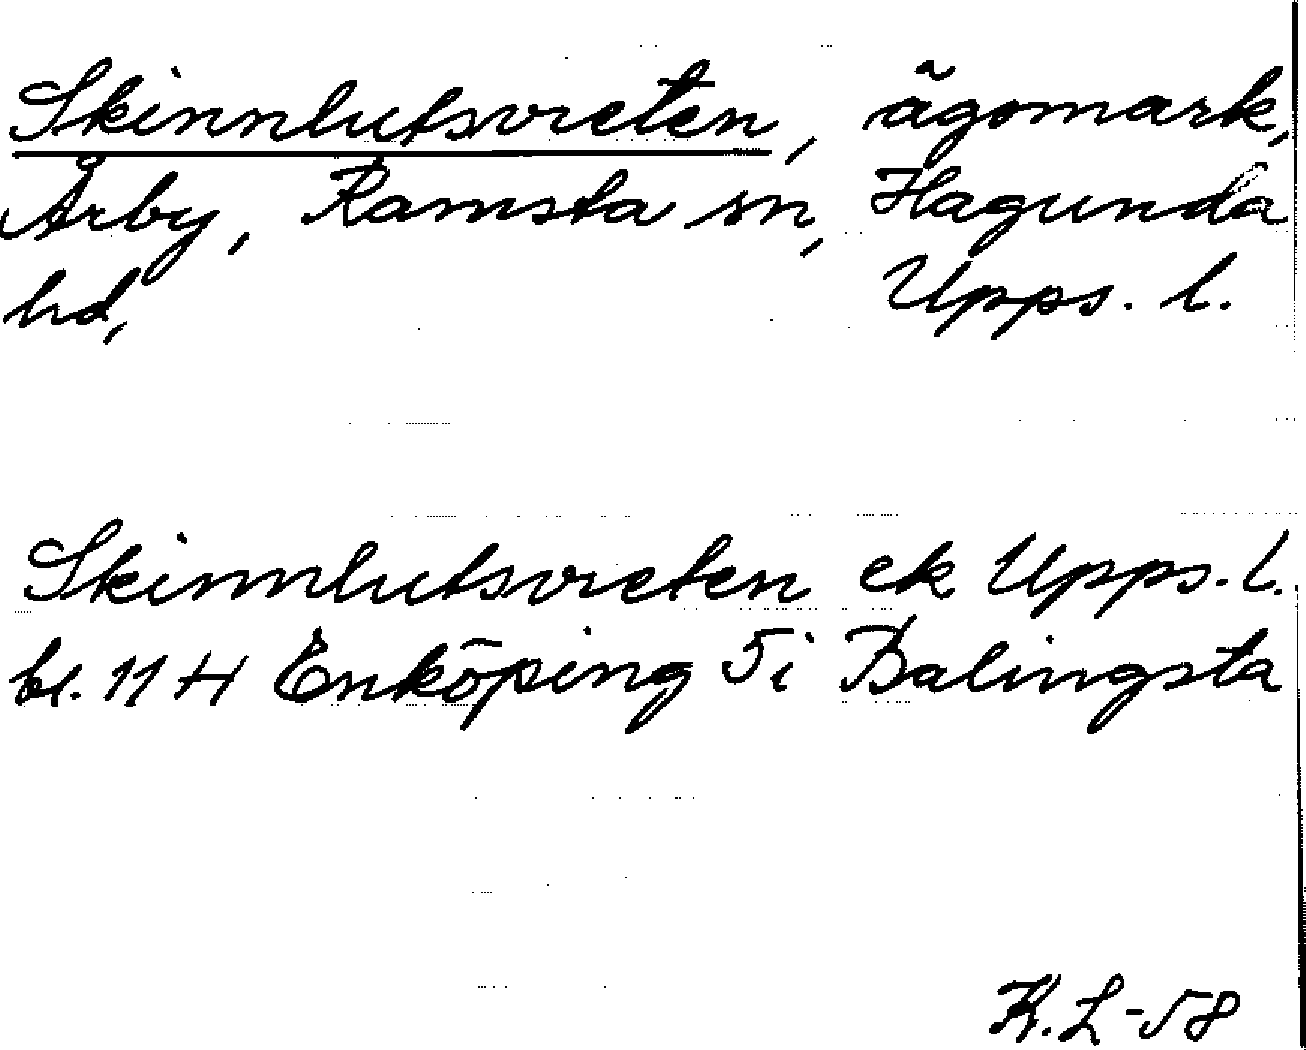 Skinnlutsvreten, ägomark,
Årby, Ramsta sn, Hagunda
hd, Upps. l.
Skinnlutsvreten ek Upps. l.
bl. 11 H Enköping 5i Balingsta
K.L-58